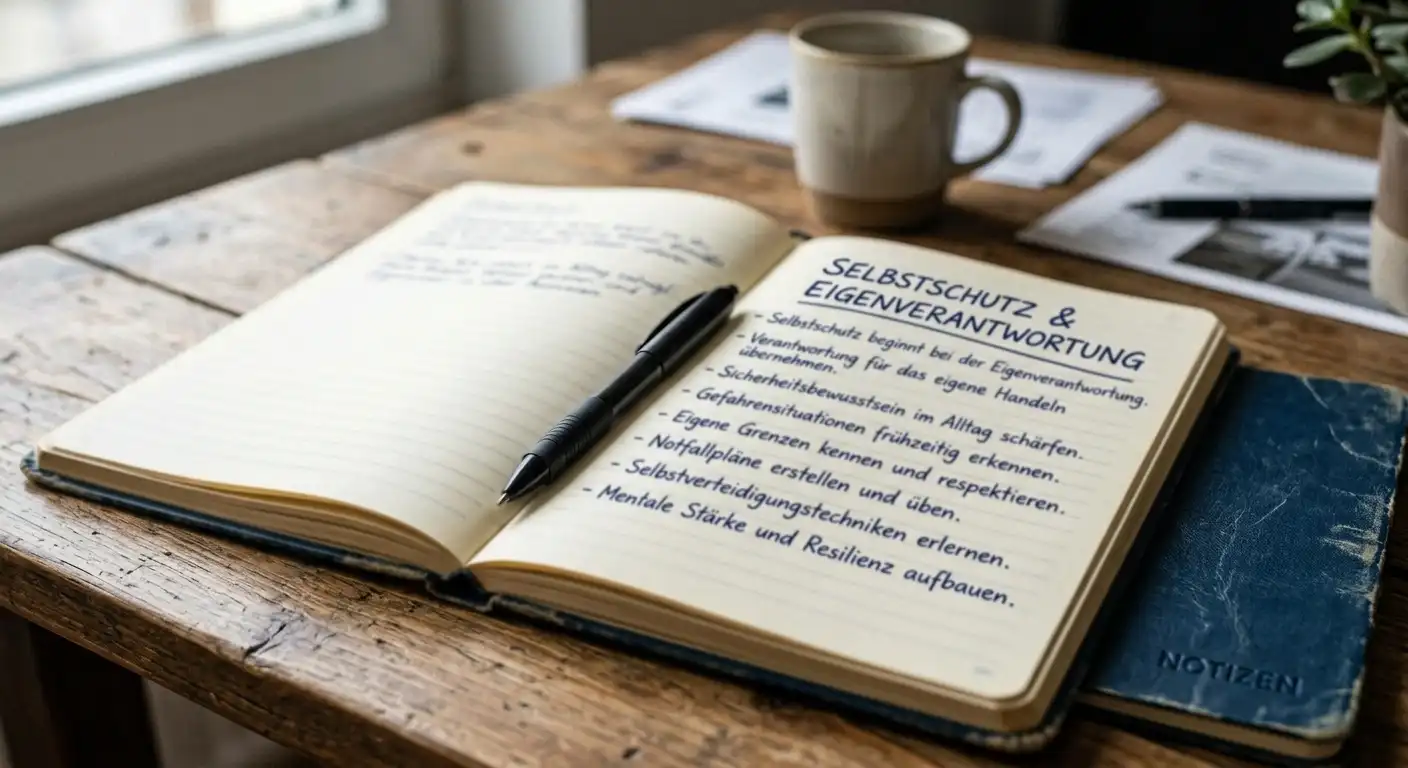 SELBSTSCHUTZ &
EIGENVERANTWORTUNG
- Selbstschutz beginnt bei der Eigenverantwortung.
- Verantwortung für das eigene Handeln
übernehmen.
- Sicherheitsbewusstsein im Alltag schärfen.
- Gefahrensituationen frühzeitig erkennen.
- Eigene Grenzen kennen und respektieren.
- Notfallpläne erstellen und üben.
- Selbstverteidigungstechniken erlernen.
- Mentale Stärke und Resilienz aufbauen.
NOTIZEN